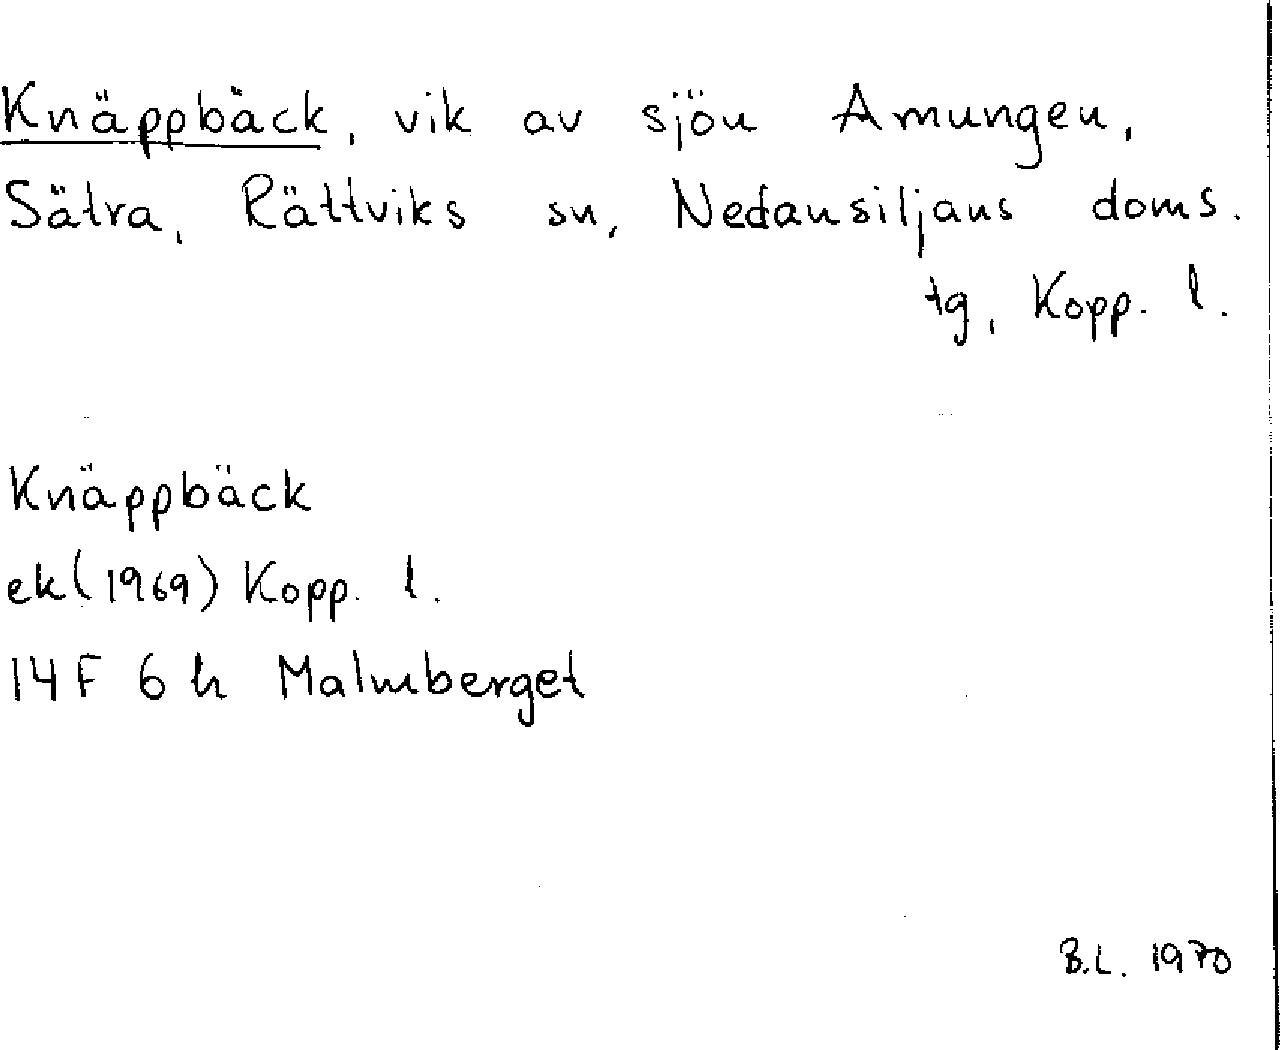 Knäppbäck, vik av sjön Amungen,
Sätra, Rättviks sn, Nedansiljans doms.
tg, Kopp. l.
Knäppbäck
ek (1969) Kopp. l.
14 F 6 h Malmberget
B.L. 1970